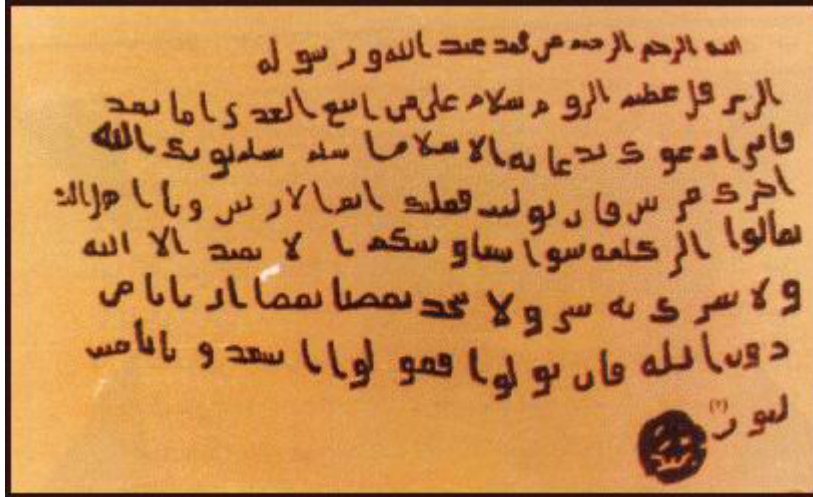 الله الرحمن الرحيم من محمد عبد الله ورسوله
الى هرقل عظيم الروم سلام على من اتبع الهدى اما بعد
فانى ادعوك بدعاية الاسلام اسلم تسلم يوتك الله
اجرك مرتين فان توليت فعليك اثم الاريسين ويا اهل الك
تعالوا الى كلمة سوا بيننا وبينكم الا نعبد الا الله
ولا نشرك به شى ولا يتخذ بعضنا بعضا اربابا من
دون الله فان تولوا فقولوا اشهدوا بانا مس
لمون (٢)